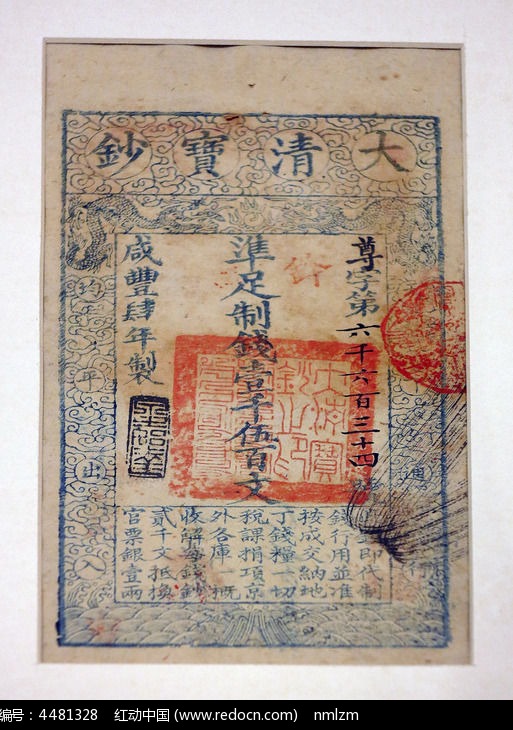 大清寶鈔
尊字第六千六百三十四
準足制錢壹千伍百文
咸豐肆年製
即代制
錢行用並准
按成交納地
丁錢糧一切
稅課捐項京
外各庫一概
收解每錢鈔
貳千文抵換
官票銀壹兩
通行
均平出入
编号：4481328 红动中国 (www.redocn.com) nmlzm